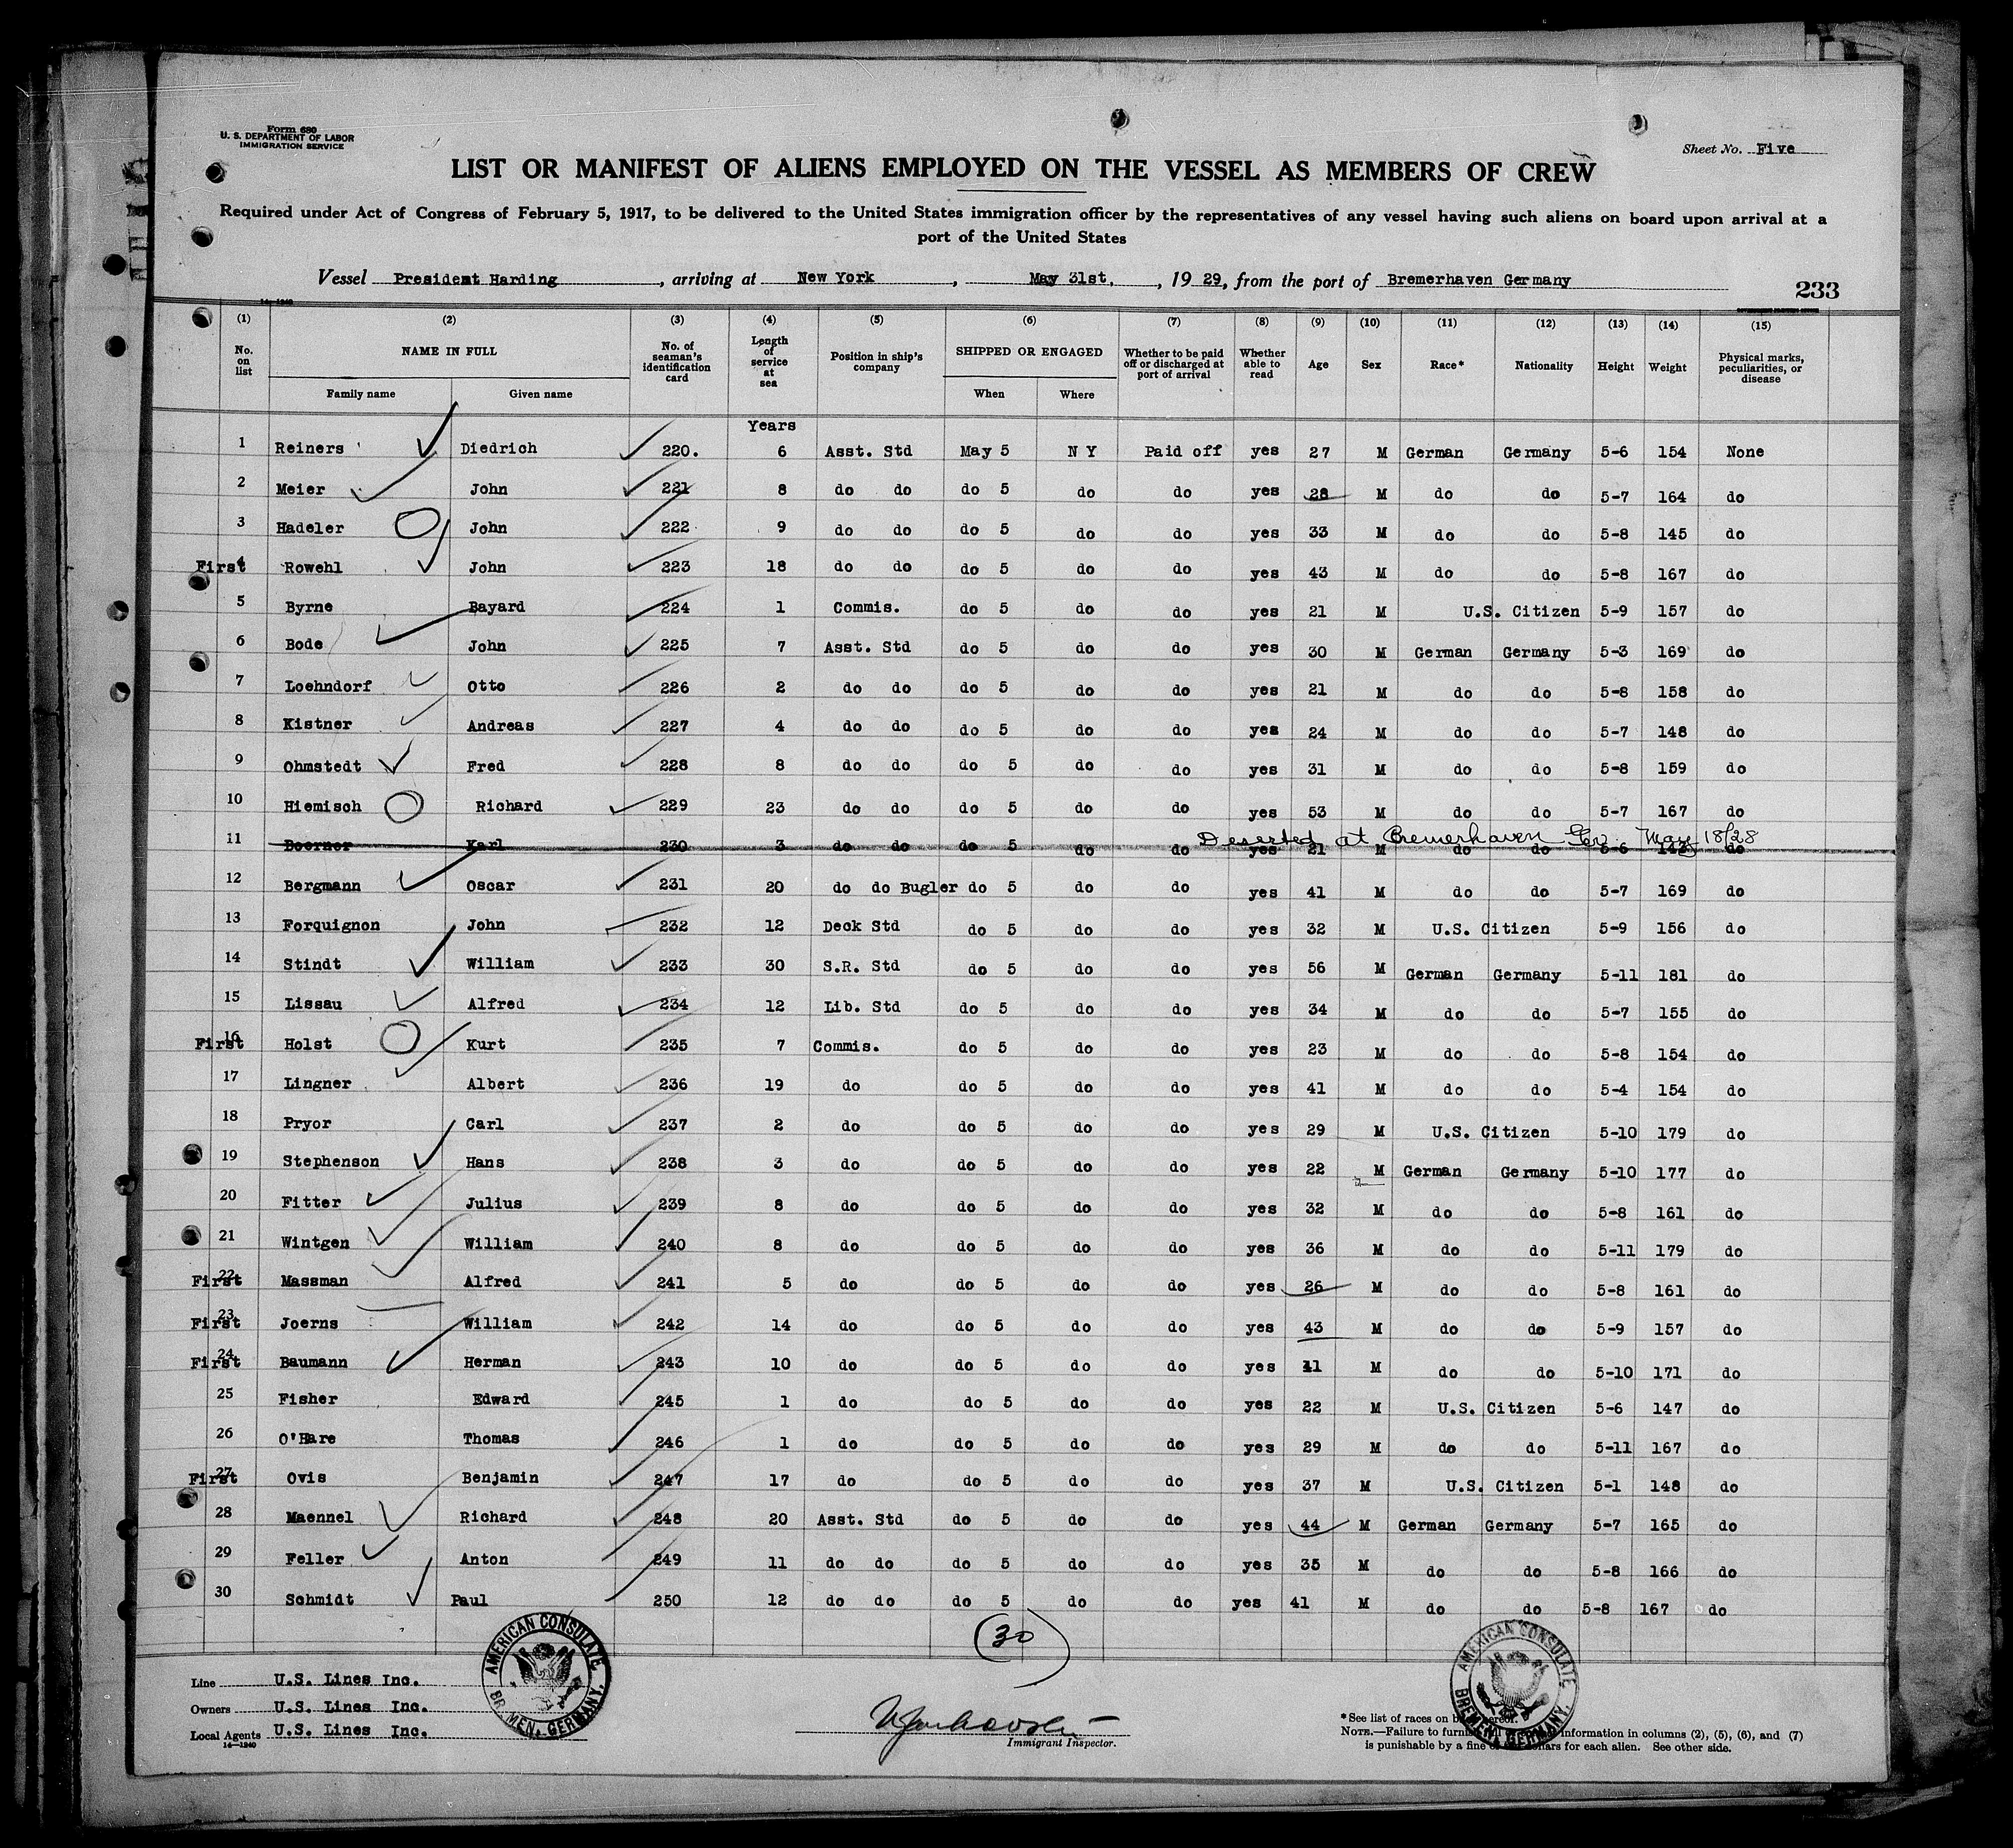 Form 680
U. S. DEPARTMENT OF LABOR
IMMIGRATION SERVICE
Sheet No. Five
LIST OR MANIFEST OF ALIENS EMPLOYED ON THE VESSEL AS MEMBERS OF CREW
Required under Act of Congress of February 5, 1917, to be delivered to the United States immigration officer by the representatives of any vessel having such aliens on board upon arrival at a
port of the United States
Vessel President Harding, arriving at New York, May 31st, , 19 29, from the port of Bremerhaven Germany
233
14-1240
(1) (2) (3) (4) (5) (6) (7) (8) (9) (10) (11) (12) (13) (14) (15)
No. on list NAME IN FULL No. of seaman's identification card Length of service at sea Position in ship's company SHIPPED OR ENGAGED Whether to be paid off or discharged at port of arrival Whether able to read Age Sex Race* Nationality Height Weight Physical marks, peculiarities, or disease
Family name Given name When Where
Years
1 Reiners Diedrich 220. 6 Asst. Std May 5 N Y Paid off yes 27 M German Germany 5-6 154 None
2 Meier John 221 8 do do do 5 do do yes 28 M do do 5-7 164 do
3 Hadeler John 222 9 do do do 5 do do yes 33 M do do 5-8 145 do
First 4 Rowehl John 223 18 do do do 5 do do yes 43 M do do 5-8 167 do
5 Byrne Bayard 224 1 Commis. do 5 do do yes 21 M U.S. Citizen 5-9 157 do
6 Bode John 225 7 Asst. Std do 5 do do yes 30 M German Germany 5-3 169 do
7 Loehndorf Otto 226 2 do do do 5 do do yes 21 M do do 5-8 158 do
8 Kistner Andreas 227 4 do do do 5 do do yes 24 M do do 5-7 148 do
9 Ohmstedt Fred 228 8 do do do 5 do do yes 31 M do do 5-8 159 do
10 Hiemisch Richard 229 23 do do do 5 do do yes 53 M do do 5-7 167 do
Deserted at Bremerhaven Ger. May 18/28
11 Doerner Karl 230 3 do do do 5 do do yes 21 M do do 5-6 143 do
12 Bergmann Oscar 231 20 do do Bugler do 5 do do yes 41 M do do 5-7 169 do
13 Forquignon John 232 12 Deck Std do 5 do do yes 32 M U.S. Citizen 5-9 156 do
14 Stindt William 233 30 S.R. Std do 5 do do yes 56 M German Germany 5-11 181 do
15 Lissau Alfred 234 12 Lib. Std do 5 do do yes 34 M do do 5-7 155 do
First 16 Holst Kurt 235 7 Commis. do 5 do do yes 23 M do do 5-8 154 do
17 Lingner Albert 236 19 do do 5 do do yes 41 M do do 5-4 154 do
18 Pryor Carl 237 2 do do 5 do do yes 29 M U.S. Citizen 5-10 179 do
19 Stephenson Hans 238 3 do do 5 do do yes 22 M German Germany 5-10 177 do
20 Fitter Julius 239 8 do do 5 do do yes 32 M do do 5-8 161 do
21 Wintgen William 240 8 do do 5 do do yes 36 M do do 5-11 179 do
First 22 Massman Alfred 241 5 do do 5 do do yes 26 M do do 5-8 161 do
First 23 Joerns William 242 14 do do 5 do do yes 43 M do do 5-9 157 do
First 24 Baumann Herman 243 10 do do 5 do do yes 41 M do do 5-10 171 do
25 Fisher Edward 245 1 do do 5 do do yes 22 M U.S. Citizen 5-6 147 do
26 O'Hare Thomas 246 1 do do 5 do do yes 29 M do do 5-11 167 do
First 27 Ovis Benjamin 247 17 do do 5 do do yes 37 M U.S. Citizen 5-1 148 do
28 Maennel Richard 248 20 Asst. Std do 5 do do yes 44 M German Germany 5-7 165 do
29 Feller Anton 249 11 do do do 5 do do yes 35 M do do 5-8 166 do
30 Schmidt Paul 250 12 do do do 5 do do yes 41 M do do 5-8 167 do
(30)
AMERICAN CONSULATE
BREMEN, GERMANY.
AMERICAN CONSULATE
BREMEN, GERMANY.
Line U.S. Lines Inc.
Owners U.S. Lines Inc.
Local Agents U.S. Lines Inc.
14-1240
Immigrant Inspector.
*See list of races on back hereof.
NOTE.—Failure to furnish full information in columns (2), (5), (6), and (7)
is punishable by a fine of dollars for each alien. See other side.